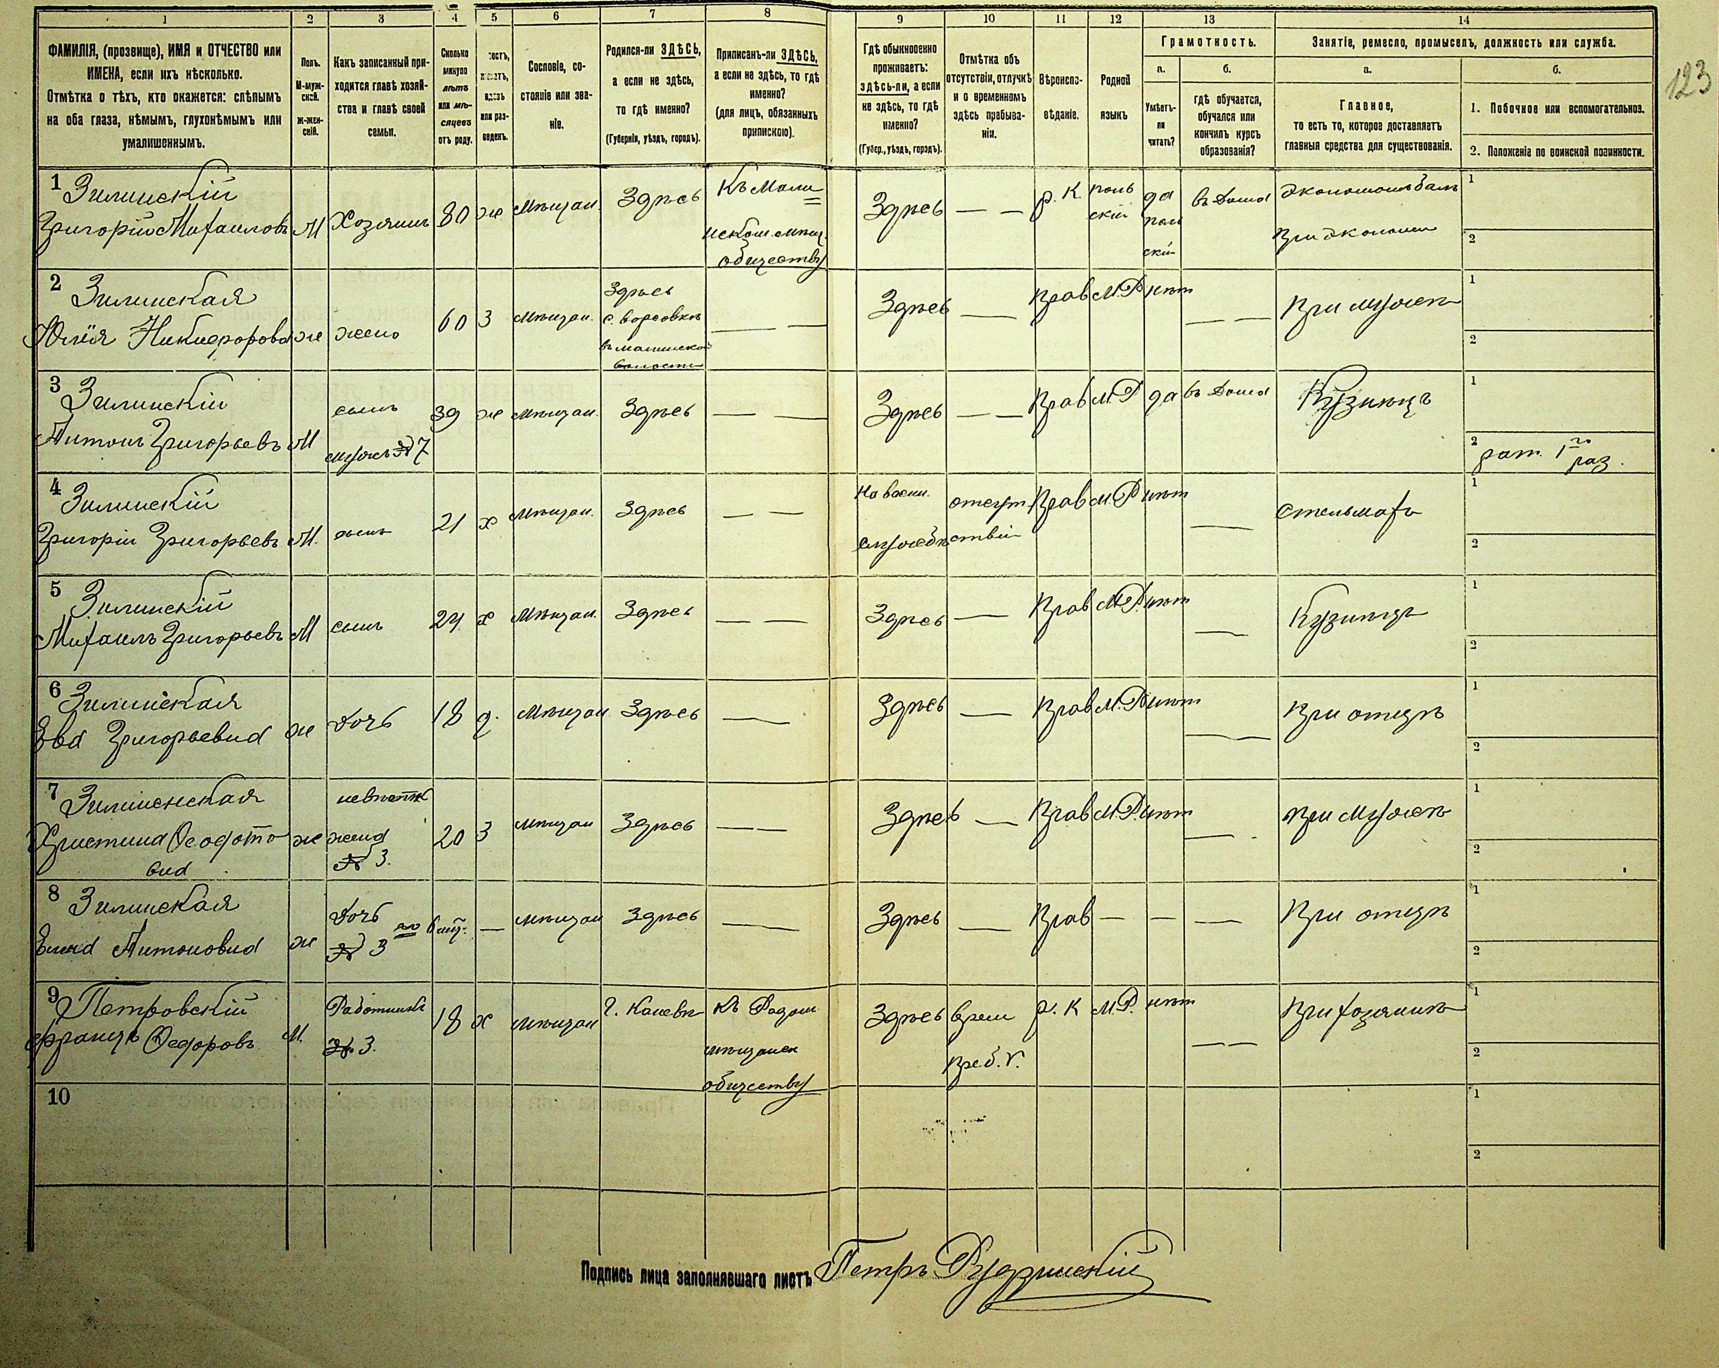 1 2 3 4 5 6 7 8 9 10 11 12 13 14
ФАМИЛІЯ, (прозвище), ИМЯ и ОТЧЕСТВО или
ИМЕНА, если ихъ нѣсколько.
Отмѣтка о тѣхъ, кто окажется: слѣпымъ
на оба глаза, нѣмымъ, глухонѣмымъ или
умалишеннымъ.
Полъ.
М-муж-
ской.
ж-жен-
скій.
Какъ записанный при-
ходится главѣ хозяй-
ства и главѣ своей
семьи.
Сколько
минуло
лѣтъ
или мѣ-
сяцевъ
отъ роду.
или раз-
веденъ.
Сословіе, со-
стояніе или зва-
ніе.
Родился-ли ЗДѢСЬ,
а если не здѣсь,
то гдѣ именно?
(Губернія, уѣздъ, городъ).
Приписанъ-ли ЗДѢСЬ,
а если не здѣсь, то гдѣ
именно?
(для лицъ, обязанныхъ
припискою).
Гдѣ обыкновенно
проживаетъ:
здѣсь-ли, а если
не здѣсь, то гдѣ
именно?
(Губер., уѣздъ, городъ).
Отмѣтка объ
отсутствіи, отлучкѣ
и о временномъ
здѣсь пребыва-
ніи.
Вѣроиспо-
вѣданіе.
Родной
языкъ
Грамотность.
а. б.
Умѣетъ-
ли
читать?
гдѣ обучается,
обучался или
кончилъ курсъ
образованія?
Занятіе, ремесло, промыселъ, должность или служба.
а. б.
Главное,
то есть то, которое доставляетъ
главныя средства для существованія.
1. Побочное или вспомогательноз.
2. Положеніе по воинской повинности.
123
1 Зилинскій
Григорій Михаиловъ М Хозяинъ 80 ж Мѣщан. Здѣсь Къ Мали
нском. мѣщ.
обществу
Здѣсь — — р. К. поль
скій да
поль
скій въ Дома Экономомъ был
При Экономіи
1
2
2 Зилинская
Юлія Никифорова ж жена 60 З мѣщан. Здѣсь
с. Ворсовкѣ
въ малинской
волости
— — Здѣсь — Прав М.Р нѣт — — При мужѣ
1
2
3 Зилинскій
Антонъ Григорьевъ М сынъ
мужъ № 7 39 ж мѣщан. Здѣсь — — Здѣсь — — Прав М.Р да въ Дома Кузнецъ
1
2 рат. 1го раз.
4 Зилинскій
Григорій Григорьевъ М. сынъ 21 х Мѣщан. Здѣсь — — На воен.
службѣ отсут
ствіи Прав М.Р нѣт — стельмахъ
1
2
5 Зилинскій
Михаилъ Григорьевъ М сынъ 24 х Мѣщан. Здѣсь — — Здѣсь — Прав М.Р. нѣт — Кузнецъ
1
2
6 Зилинская
Ева Григорьевна ж Дочь 18 д. мѣщан Здѣсь — Здѣсь — Прав М.Р нѣт — При отцѣ
1
2
7 Зилиненская
Христина Феодото
вна ж невѣстка
жена
№ 3. 20 З мѣщан Здѣсь — — Здѣсь — Прав М.Р нѣт — При мужѣ
1
2
8 Зилинская
Антоновна ж Дочь
№ 3 — мѣщан Здѣсь — Здѣсь — Прав — — — При отцѣ
1
2
9 Петровскій
Францъ Федоровъ М. Работникъ
№ 3. 18 х мѣщан Г. Каневѣ Къ Радом
мѣщанск
обществу
Здѣсь врем
Преб. р. К М.Р. нѣт — — При хозяинѣ
1
2
10
1
2
Подпись лица заполнявшаго листъ Петръ Рудзинскій